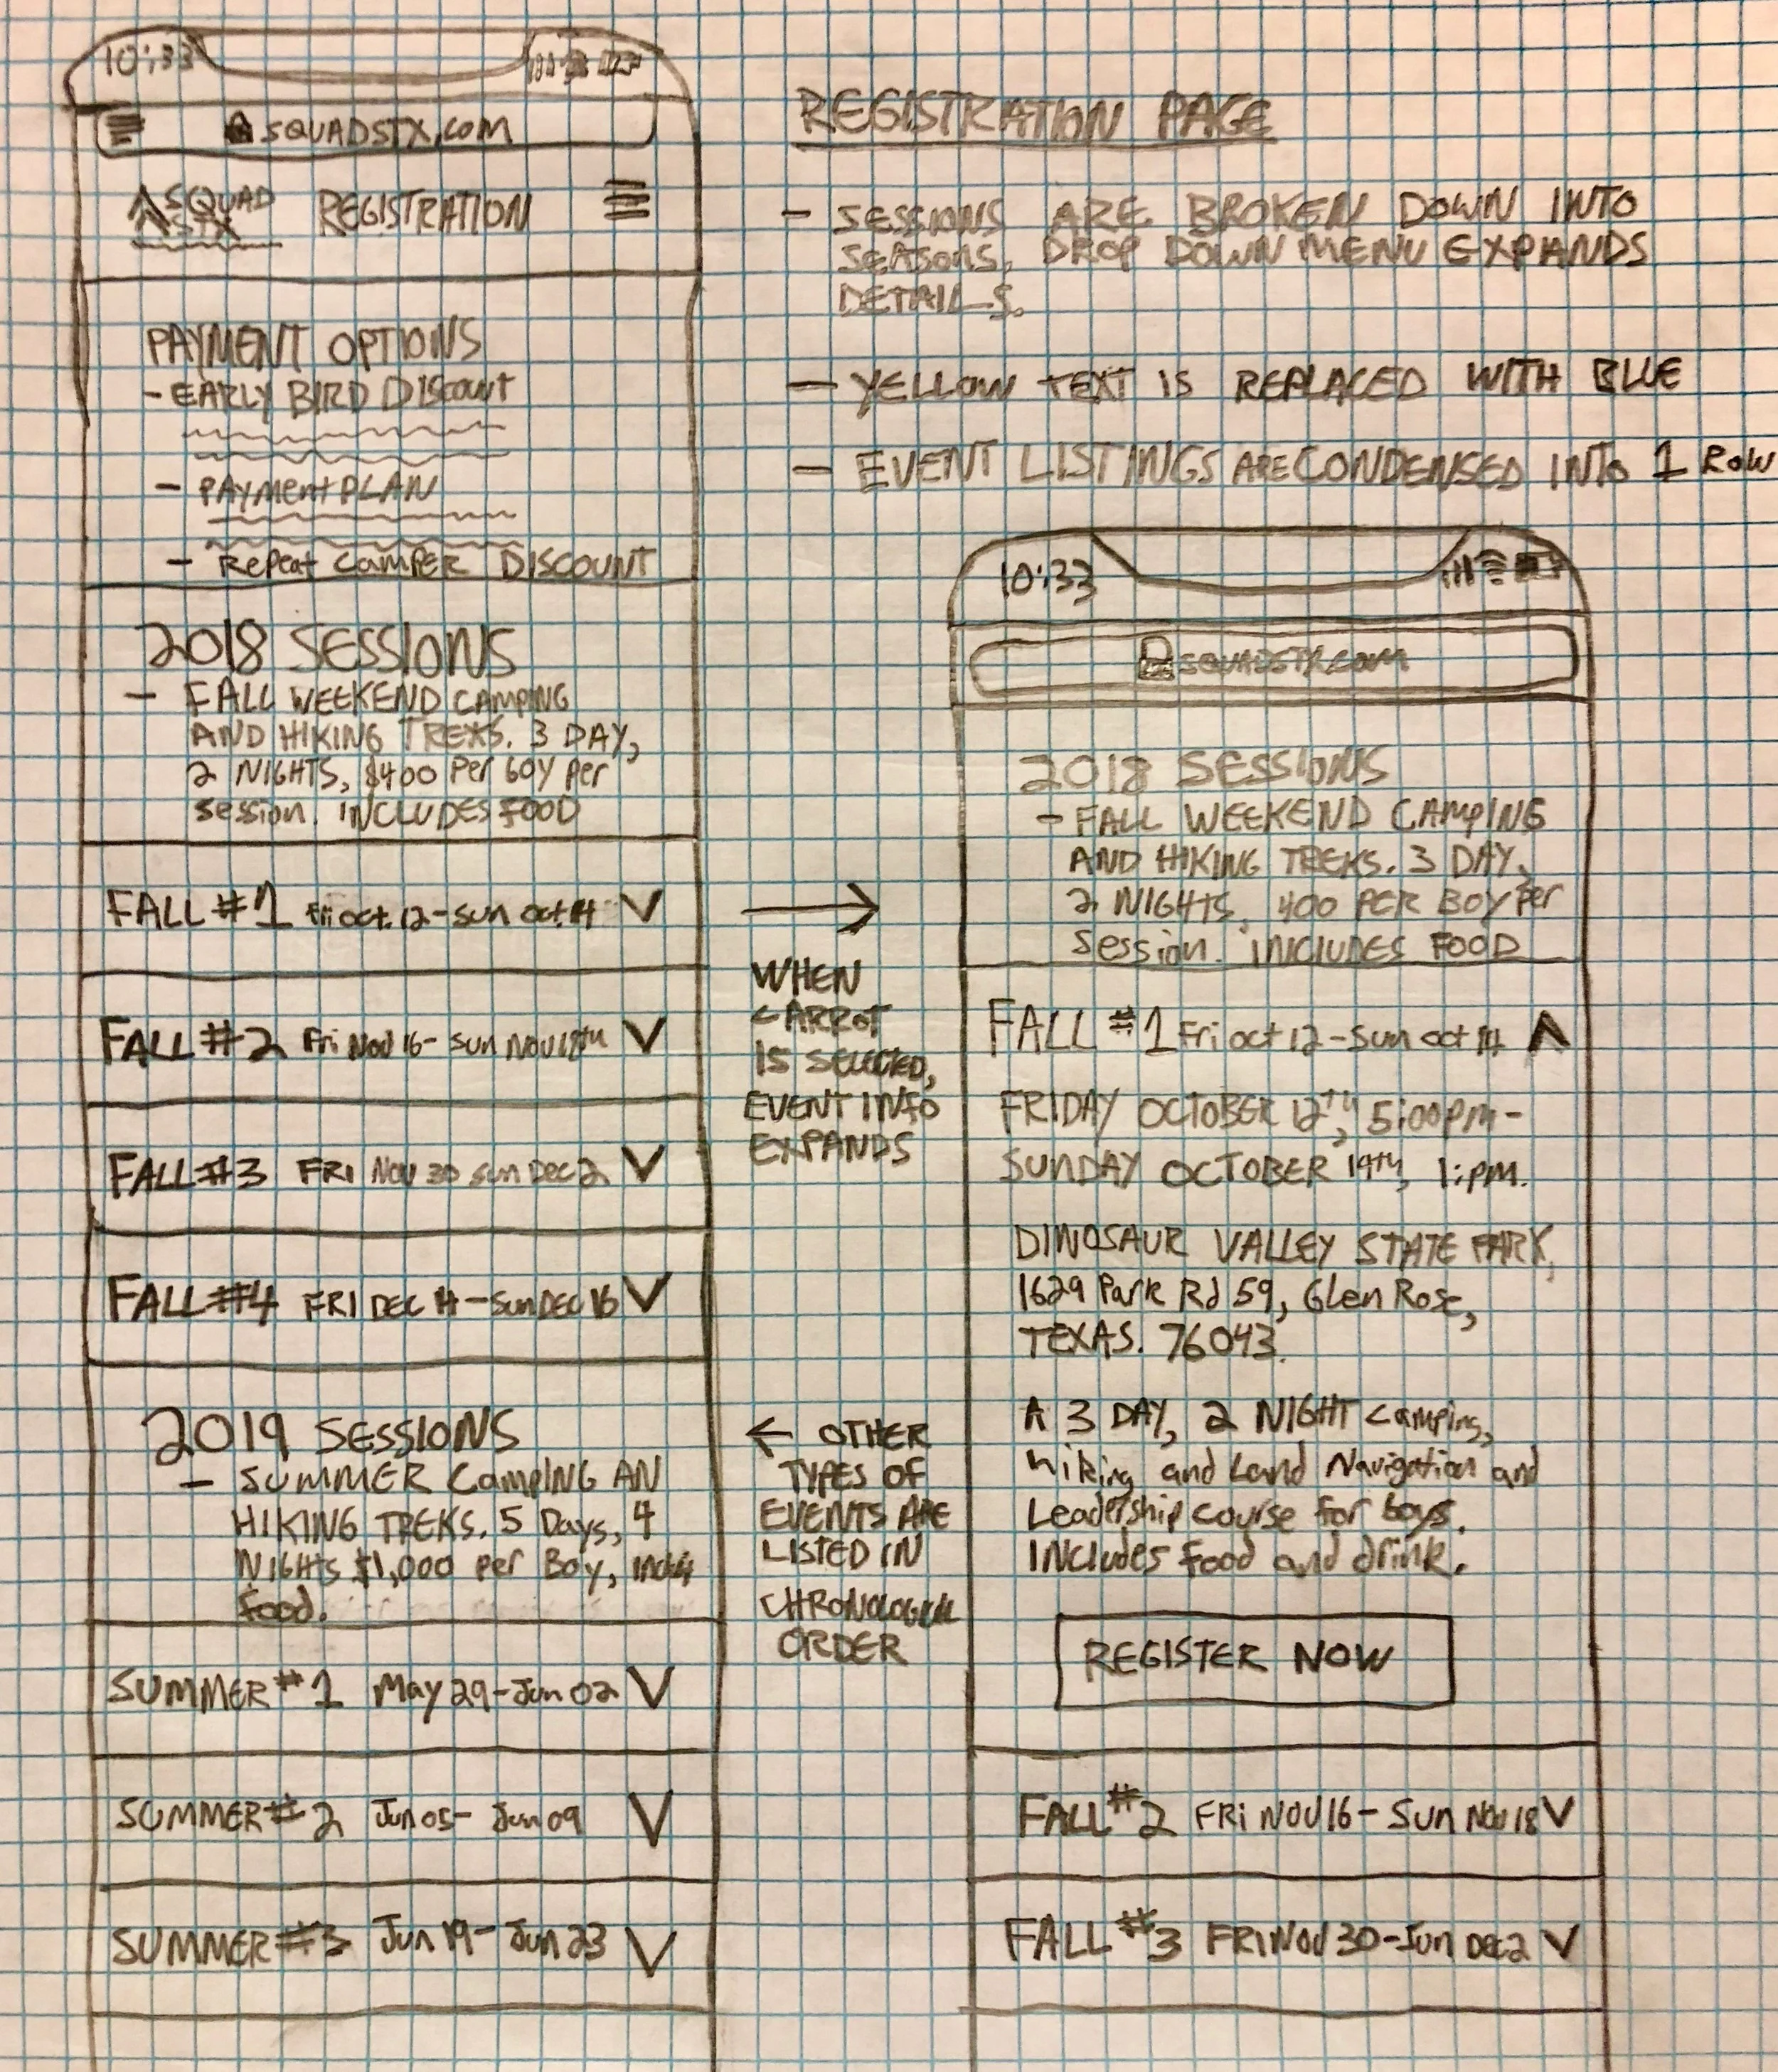 10:33
SQUADSTX.com
SQUAD
STX
REGISTRATION
PAYMENT OPTIONS
- EARLY BIRD DISCOUNT
- PAYMENT PLAN
- Repeat CAMPER DISCOUNT
2018 SESSIONS
- FALL WEEKEND CAMPING
AND HIKING TREKS. 3 DAY,
2 NIGHTS, $400 Per boy per
session. INCLUDES FOOD
FALL #1 Fri oct. 12 - Sun oct 14 V
FALL #2 Fri Nov 16 - Sun Nov 18th V
FALL #3 FRI Nov 30 Sun Dec 2 V
FALL #4 FRI DEC 14 - Sun DEC 16 V
2019 SESSIONS
- SUMMER CAMPING AN
HIKING TREKS. 5 Days, 4
NIGHTS $1,000 per Boy,
food.
SUMMER #1 May 29 - Jun 02 V
SUMMER #2 Jun 05 - Jun 09 V
SUMMER #3 Jun 19 - Jun 23 V
REGISTRATION PAGE
- SESSIONS ARE BROKEN DOWN INTO
SEASONS, DROP DOWN MENU EXPANDS
DETAILS.
- YELLOW TEXT IS REPLACED WITH BLUE
- EVENT LISTINGS ARE CONDENSED INTO 1 ROW
→
WHEN
CARROT
IS SELECTED,
EVENT INFO
EXPANDS
← OTHER
TYPES OF
EVENTS ARE
LISTED IN
CHRONOLOGICAL
ORDER
10:33
SQUADSTX.com
2018 SESSIONS
- FALL WEEKEND CAMPING
AND HIKING TREKS. 3 DAY,
2 NIGHTS, 400 PER BOY per
session. INCLUDES FOOD
FALL #1 Fri oct 12 - Sun oct 14 Λ
FRIDAY OCTOBER 12TH, 5:00pm -
SUNDAY OCTOBER 14TH, 1:pm.
DINOSAUR VALLEY STATE PARK,
1629 Park Rd 59, Glen Rose,
TEXAS. 76043.
A 3 DAY, 2 NIGHT camping,
hiking and Land Navigation and
Leadership course for boys.
INCLUDES food and drink.
REGISTER NOW
FALL #2 FRI NOV 16 - Sun Nov 18 V
FALL #3 FRI NOV 30 - Sun Dec 2 V